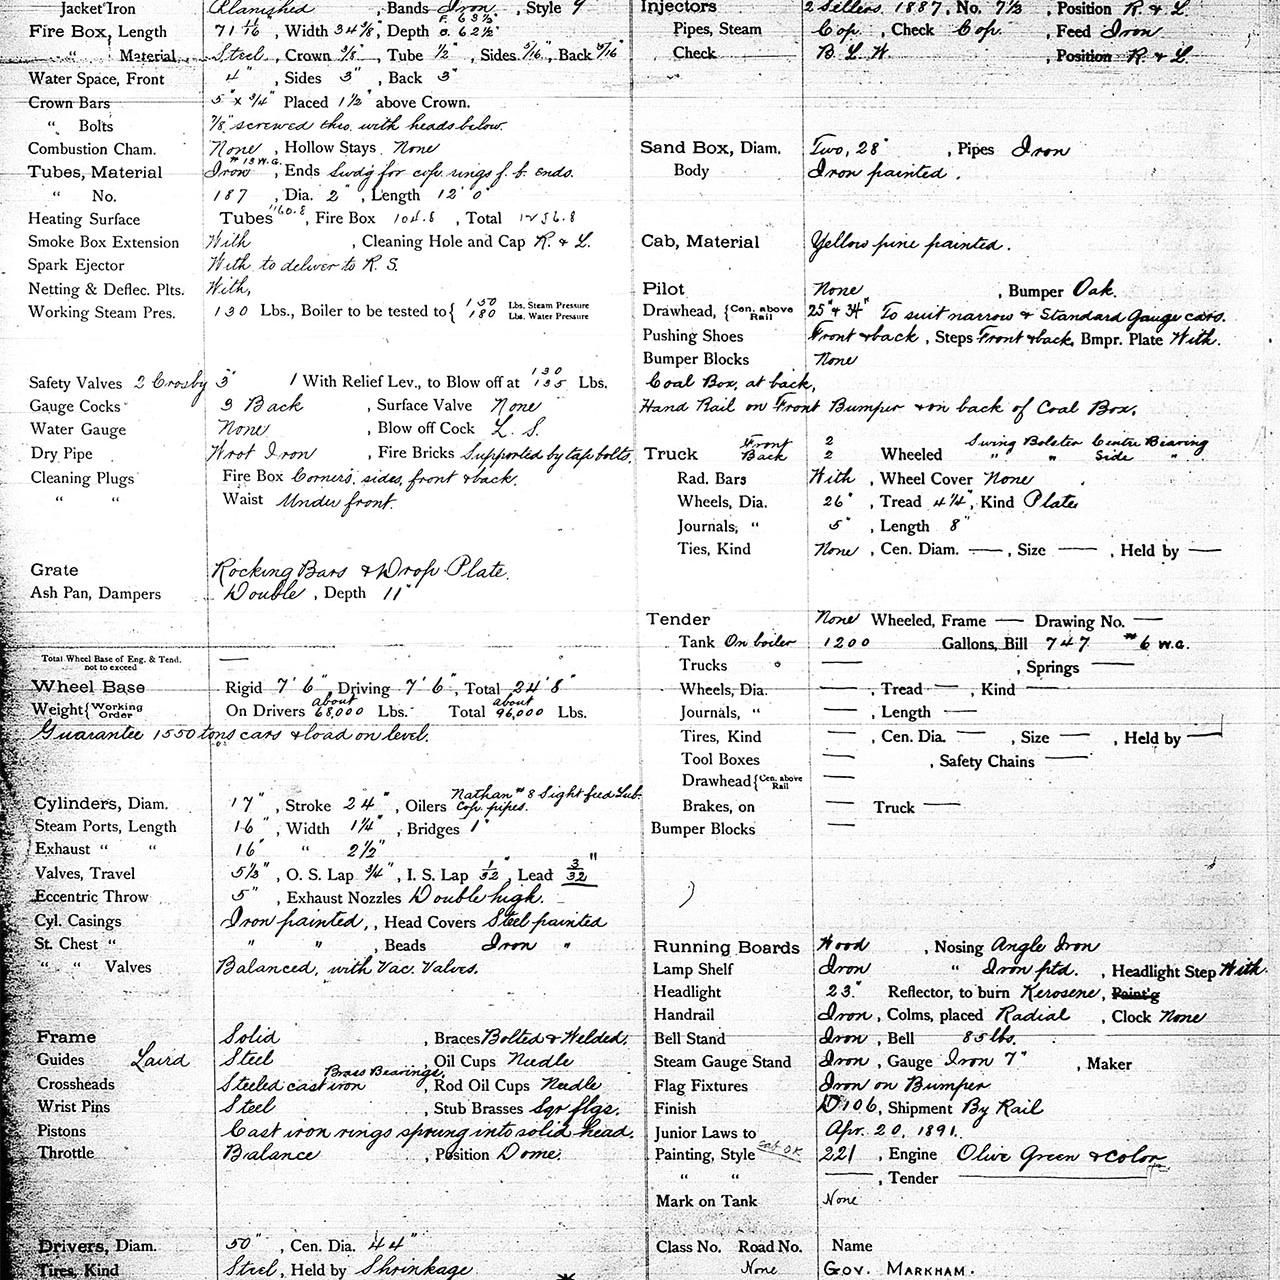 Jacket Iron Planished , Bands Iron , Style 9
Fire Box, Length 71 1/16" , Width 34 3/8" , Depth F. 63 1/2" B. 62 1/2"
" Material Steel , Crown 3/8" , Tube 1/2" , Sides 5/16" , Back 5/16"
Water Space, Front 4" , Sides 3" , Back 3"
Crown Bars 5" x 3/4" Placed 1 1/2" above Crown.
" Bolts 7/8" screwed thro. with heads below.
Combustion Cham. None , Hollow Stays None
Tubes, Material Iron #13 W.G. , Ends Swdg for cop. rings f. b. ends.
" No. 187 , Dia. 2" , Length 12' 0"
Heating Surface Tubes 1160.8 , Fire Box 104.8 , Total
Smoke Box Extension With , Cleaning Hole and Cap R. & L.
Spark Ejector With to deliver to R. S.
Netting & Deflec. Plts. With,
Working Steam Pres. 130 Lbs., Boiler to be tested to { 150 Lbs. Steam Pressure
180 Lbs. Water Pressure
Safety Valves 2 Crosby 3" 1 With Relief Lev., to Blow off at 130 135 Lbs.
Gauge Cocks 3 Back , Surface Valve None
Water Gauge None , Blow off Cock L. S.
Dry Pipe Wrot Iron , Fire Bricks Supported by tap bolts.
Cleaning Plugs Fire Box Corners, sides, front & back.
" " Waist Under front.
Grate Rocking Bars & Drop Plate.
Ash Pan, Dampers Double , Depth 11"
Total Wheel Base of Eng. & Tend. not to exceed —
Wheel Base Rigid 7' 6" , Driving 7' 6" , Total 24' 8"
Weight { Working Order On Drivers about 68,000 Lbs. Total about 96,000 Lbs.
Guarantee 1550 tons cars & load on level.
Cylinders, Diam. 17" , Stroke 24" , Oilers Nathan #8 Sight feed Lub. Cop. pipes.
Steam Ports, Length 16" , Width 1 1/4" , Bridges 1"
Exhaust " " 16" " 2 1/2"
Valves, Travel 5 1/2" , O. S. Lap 3/4" , I. S. Lap 1/32" , Lead 3/32"
Eccentric Throw 5" , Exhaust Nozzles Double high.
Cyl. Casings Iron painted , Head Covers Steel painted
St. Chest " " " , Beads Iron "
" " Valves Balanced, with Vac. Valves.
Frame Solid , Braces Bolted & Welded.
Guides Laird Steel , Oil Cups Needle
Crossheads Steeled cast iron Brass Bearings , Rod Oil Cups Needle
Wrist Pins Steel , Stub Brasses Sqr flgs.
Pistons Cast iron rings sprung into solid head.
Throttle Balance , Position Dome.
Drivers, Diam. 50" , Cen. Dia. 44"
Tires, Kind Steel , Held by Shrinkage
Injectors 2 Sellers, 1887, No. 7 1/2 , Position R. & L.
Pipes, Steam Cop. , Check Cop. , Feed Iron
Check B. L. W. , Position R. & L.
Sand Box, Diam. Two, 28" , Pipes Iron
Body Iron painted.
Cab, Material Yellow pine painted.
Pilot None , Bumper Oak.
Drawhead, { Cen. above Rail 25" & 34" To suit narrow & Standard Gauge cars.
Pushing Shoes Front & back , Steps Front & back, Bmpr. Plate With.
Bumper Blocks None
Coal Box, at back,
Hand Rail on Front Bumper & on back of Coal Box.
Truck Front 2 Wheeled Swing Bolster Centre Bearing
Back 2 " " Side "
Rad. Bars With , Wheel Cover None
Wheels, Dia. 26" , Tread 4 1/4" , Kind Plate
Journals, " 5" , Length 8"
Ties, Kind None , Cen. Diam. — , Size — , Held by —
Tender None Wheeled, Frame — Drawing No. —
Tank On boiler 1200 Gallons, Bill 747 #6 W.G.
Trucks — , Springs —
Wheels, Dia. — , Tread — , Kind —
Journals, " — , Length —
Tires, Kind — , Cen. Dia. — , Size — , Held by —
Tool Boxes — , Safety Chains —
Drawhead { Cen. above Rail —
Brakes, on — Truck —
Bumper Blocks —
Running Boards Wood , Nosing Angle Iron
Lamp Shelf Iron " Iron ptd. , Headlight Step With
Headlight 23" Reflector, to burn Kerosene, Paint'g
Handrail Iron , Colms, placed Radial , Clock None
Bell Stand Iron , Bell 85 lbs.
Steam Gauge Stand Iron , Gauge Iron 7" , Maker
Flag Fixtures Iron on Bumper
Finish D 106, Shipment By Rail
Junior Laws to Apr. 20, 1891.
Painting, Style 221 , Engine Olive Green & Color
" " — , Tender —
Mark on Tank None
Class No. Road No. Name
None GOV. MARKHAM.